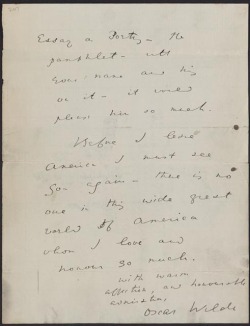 Essay on Poetry - the
pamphlet - with
your name and his
on it - it would
please him so much.
Before I leave
America I must see
you again - there is no
one in this wide great
world of America
whom I love and
honour so much.
With warm
affection, and honourable
admiration,
Oscar Wilde